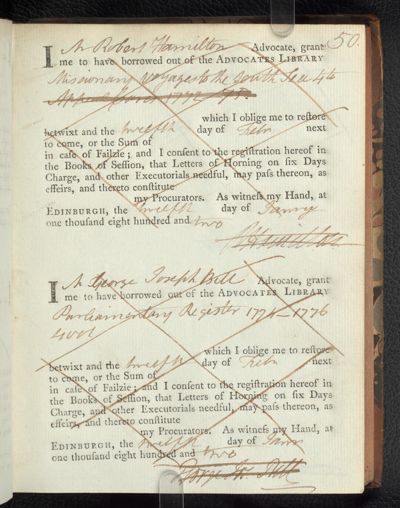 50.
I Mr Robert Hamilton Advocate, grant
me to have borrowed out of the ADVOCATES LIBRARY
Missionary Voyage to the South Sea 4to
which I oblige me to restore
betwixt and the twelfth day of Feby next
to come, or the Sum of
in case of Failzie; and I consent to the registration hereof in
the Books of Session, that Letters of Horning on six Days
Charge, and other Executorials needful, may pass thereon, as
effeirs, and thereto constitute
my Procurators. As witness my Hand, at
EDINBURGH, the twelfth day of
one thousand eight hundred and two
R Hamilton
I Mr George Joseph Bell Advocate, grant
me to have borrowed out of the ADVOCATES LIBRARY
Parliamentary Register 1774-1776
4 vol
which I oblige me to restore
betwixt and the twelfth day of Feby next
to come, or the Sum of
in case of Failzie; and I consent to the registration hereof in
the Books of Session, that Letters of Horning on six Days
Charge, and other Executorials needful, may pass thereon, as
effeirs, and thereto constitute
my Procurators. As witness my Hand, at
EDINBURGH, the twelfth day of
one thousand eight hundred and two
George Jos. Bell